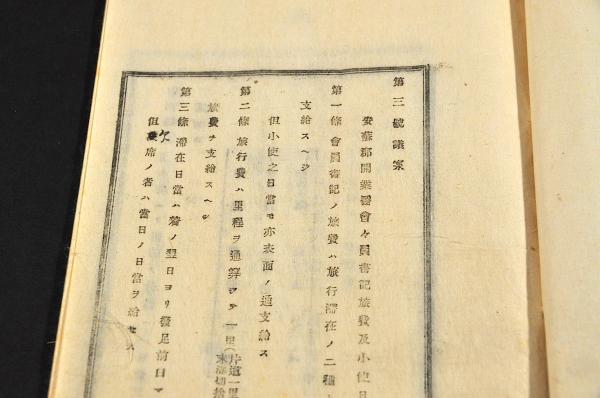 第三號議案
安藝郡開業醫會々員書記旅費及小使日
第一條 會員書記ノ旅費ハ旅行滞在ノ二種
支給スヘシ
但小使之日當モ亦表面ノ通支給ス
第二條 旅行費ハ里程ヲ通算シテ一里(片道一里 末満切捨
旅費ヲ支給スヘシ
第三條 滞在日當ハ着ノ翌日ヨリ發足前日マ
但欠席ノ者ハ當日ノ日當ヲ給セス